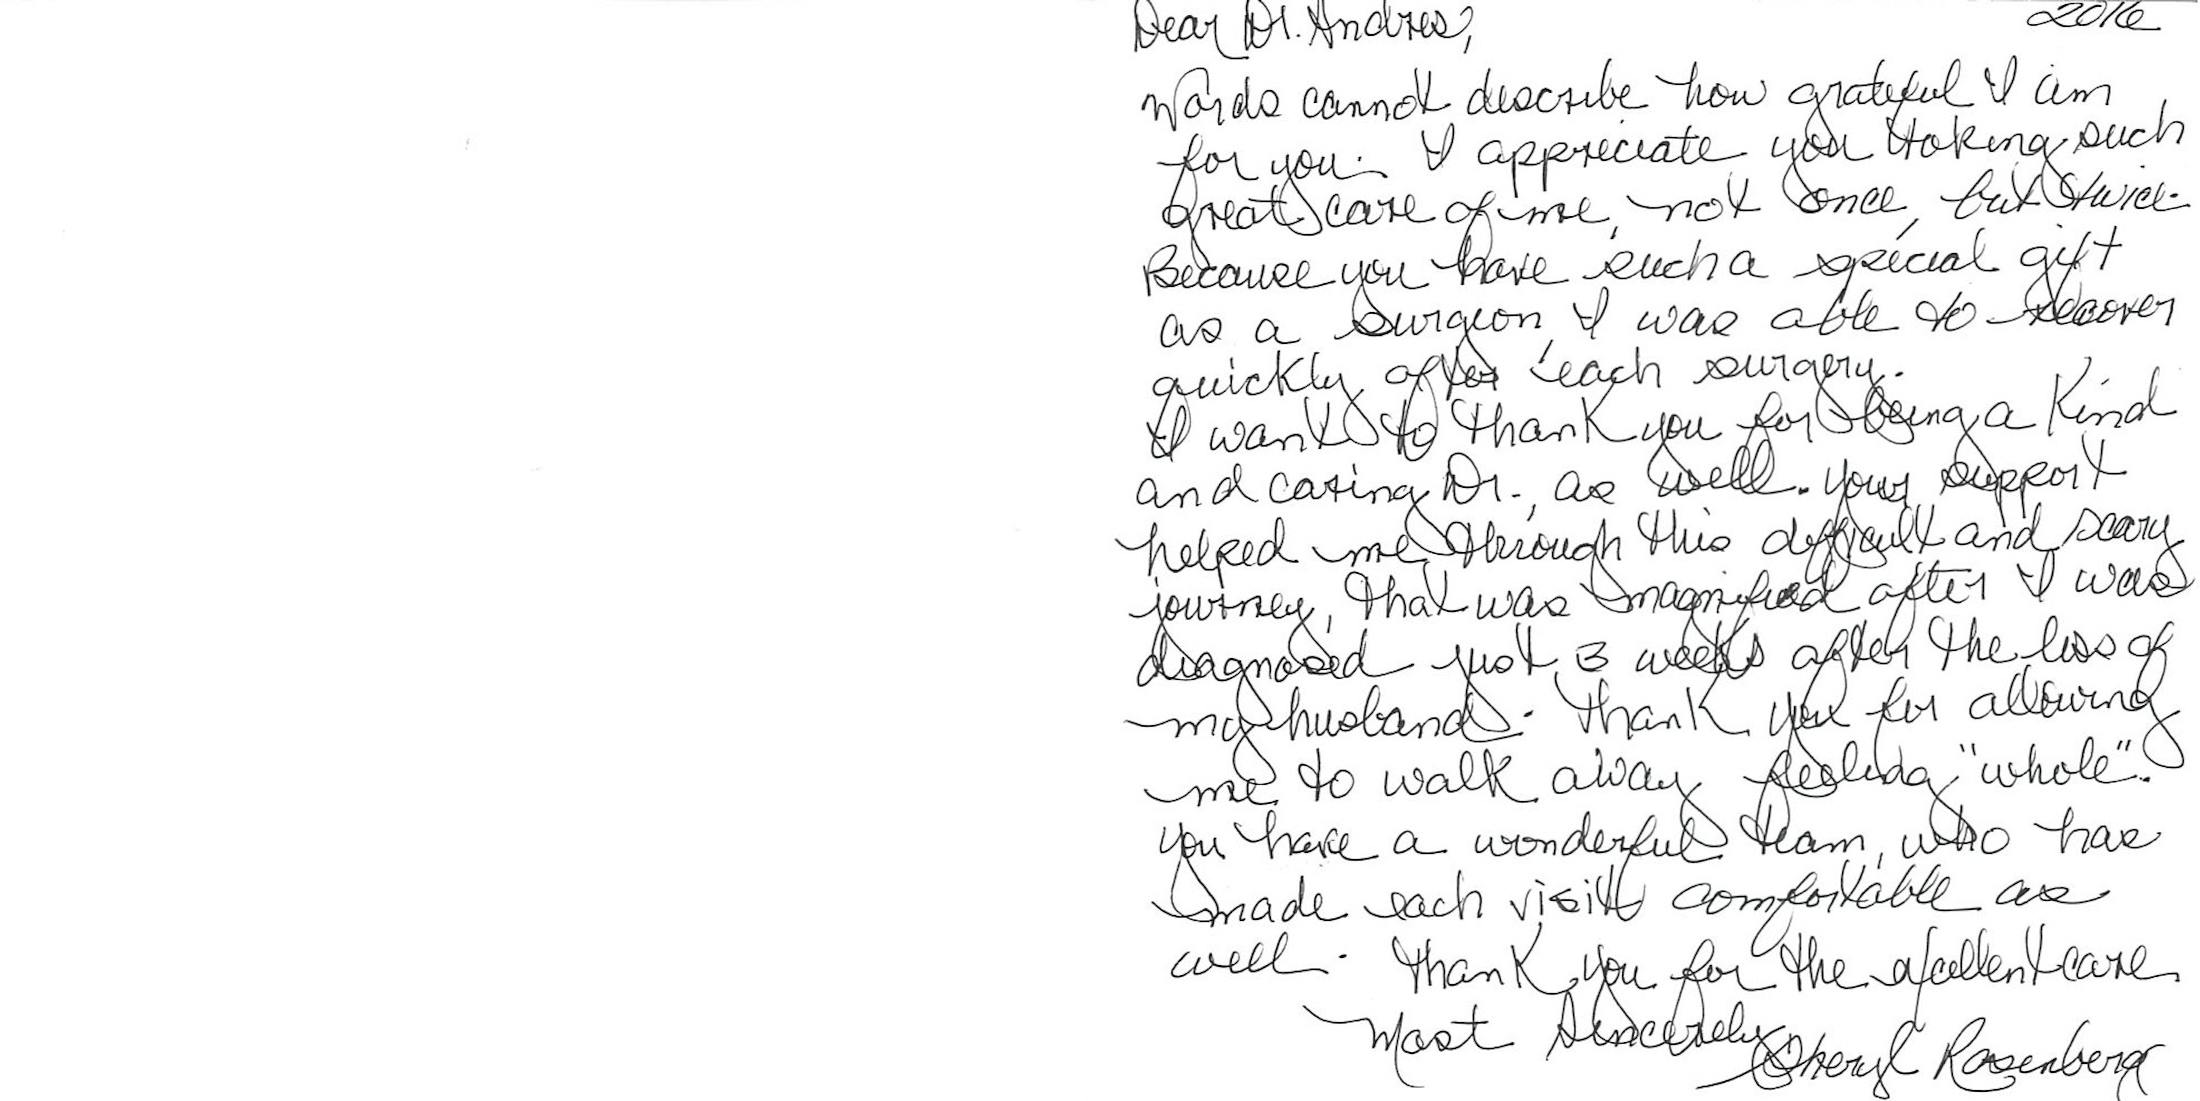 Dear Dr. Andres, 2016
Words cannot describe how grateful I am
for you. I appreciate you taking such
great care of me, not once, but twice.
Because you have such a special gift
as a surgeon, I was able to recover
quickly after each surgery.
I want to thank you for being a kind
and caring Dr., as well. Your support
helped me through this difficult and scary
journey, that was magnified after I was
diagnosed just 3 weeks after the loss of
my husband. Thank you for allowing
me to walk away feeling "whole".
You have a wonderful team, who has
made each visit comfortable as
well. Thank you for the excellent care.
Most Sincerely,
Sheryl Rosenberg